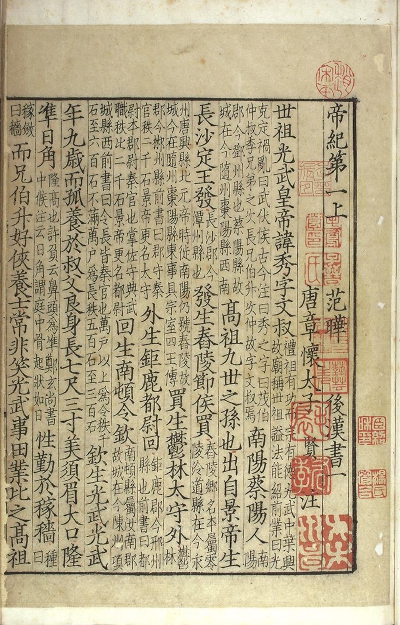 帝紀第一上 范曄 後漢書一
唐章懷太子 賢 注
世祖光武皇帝諱秀字文叔 禮祖有功而宗有德光武中葉興故廟稱世祖諡法能紹前業曰光
克定禍亂曰武伏侯古今注曰秀之字曰茂伯仲叔季兄弟之次長兄伯升次仲故字文叔焉 南陽蔡陽人 南陽
郡今鄧州縣也蔡陽縣故城在今隨州棗陽縣西南 高祖九世之孫也出自景帝生
長沙定王發 長沙郡今潭州縣也 發生舂陵節侯買 舂陵鄉名本屬零陵泠道縣在今永
州唐興縣北元帝時徙南陽仍號舂陵故城今在隨州棗陽縣東事具宗室四王傳 買生鬱林太守外 鬱林
郡今郴州縣前書曰郡守秦官秩二千石景帝更名太守 外生鉅鹿都尉回 鉅鹿郡今邢州縣也前書曰都
尉本郡尉秦官也掌佐守典武職秩比二千石景帝更名都尉 回生南頓令欽 南頓縣屬汝南郡故城在今陳州項
城縣西前書曰令長皆秦官也萬戶以上為令秩千石至六百石不滿萬戶為長秩五百石至三百石 欽生光武光武
年九歲而孤養於叔父良身長七尺三寸美須眉大口隆
準日角 隆高也許負云鼻頭為準鄭玄尚書中候注云日角謂庭中骨起狀如日 性勤於稼穡 種曰
稼斂曰穡 而兄伯升好俠養士常非笑光武事田業比之高祖